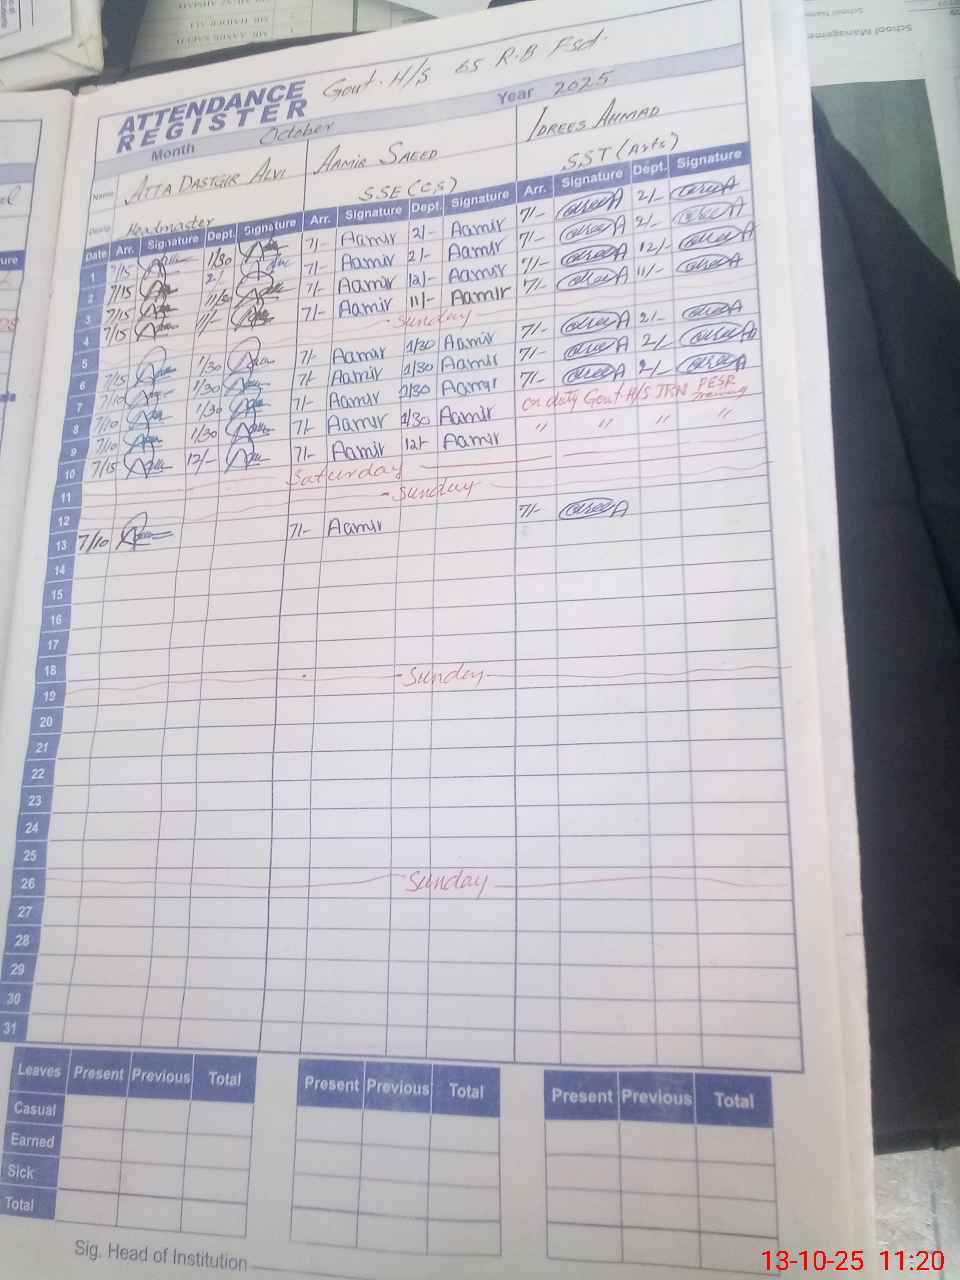 Govt. H/S 65 R.B Fsd.
ATTENDANCE REGISTER
Month October Year 2025
Name ATTA DASTGIR ALVI AAMIR SAEED IDREES AHMAD
Headmaster SSE (CS) SST (Arts)
Date Arr. Signature Dept. Signature Arr. Signature Dept. Signature Arr. Signature Dept. Signature
1 7/15 1/30 7/- Aamir 2/- Aamir 7/- 2/-
2 7/15 2/ 7/- Aamir 2/- Aamir 7/- 2/-
3 7/15 7/- Aamir 12/- Aamir 7/- 12/-
4 7/15 11/- 7/- Aamir 11/- Aamir 7/- 11/-
5 Sunday
6 7/15 1/30 7/- Aamir 1/30 Aamir 7/- 2/-
7 7/10 1/30 7/- Aamir 1/30 Aamir 7/- 2/-
8 7/10 1/30 7/- Aamir 1/30 Aamir 7/- 2/-
9 7/10 1/30 7/- Aamir 1/30 Aamir on duty Govt. H/S JRN PESR Training
10 7/15 12/- 7/- Aamir 12/- Aamir " " " "
11 Saturday
12 Sunday
13 7/10 7/- Aamir 7/-
14
15
16
17
18
19 Sunday
20
21
22
23
24
25
26 Sunday
27
28
29
30
31
Leaves Present Previous Total Present Previous Total Present Previous Total
Casual
Earned
Sick
Total
Sig. Head of Institution
13-10-25 11:20